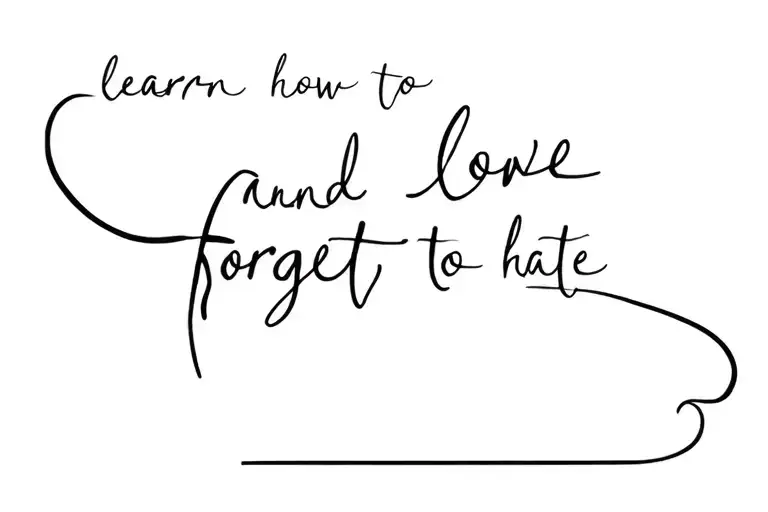 learrn how to
annd love
forget to hate